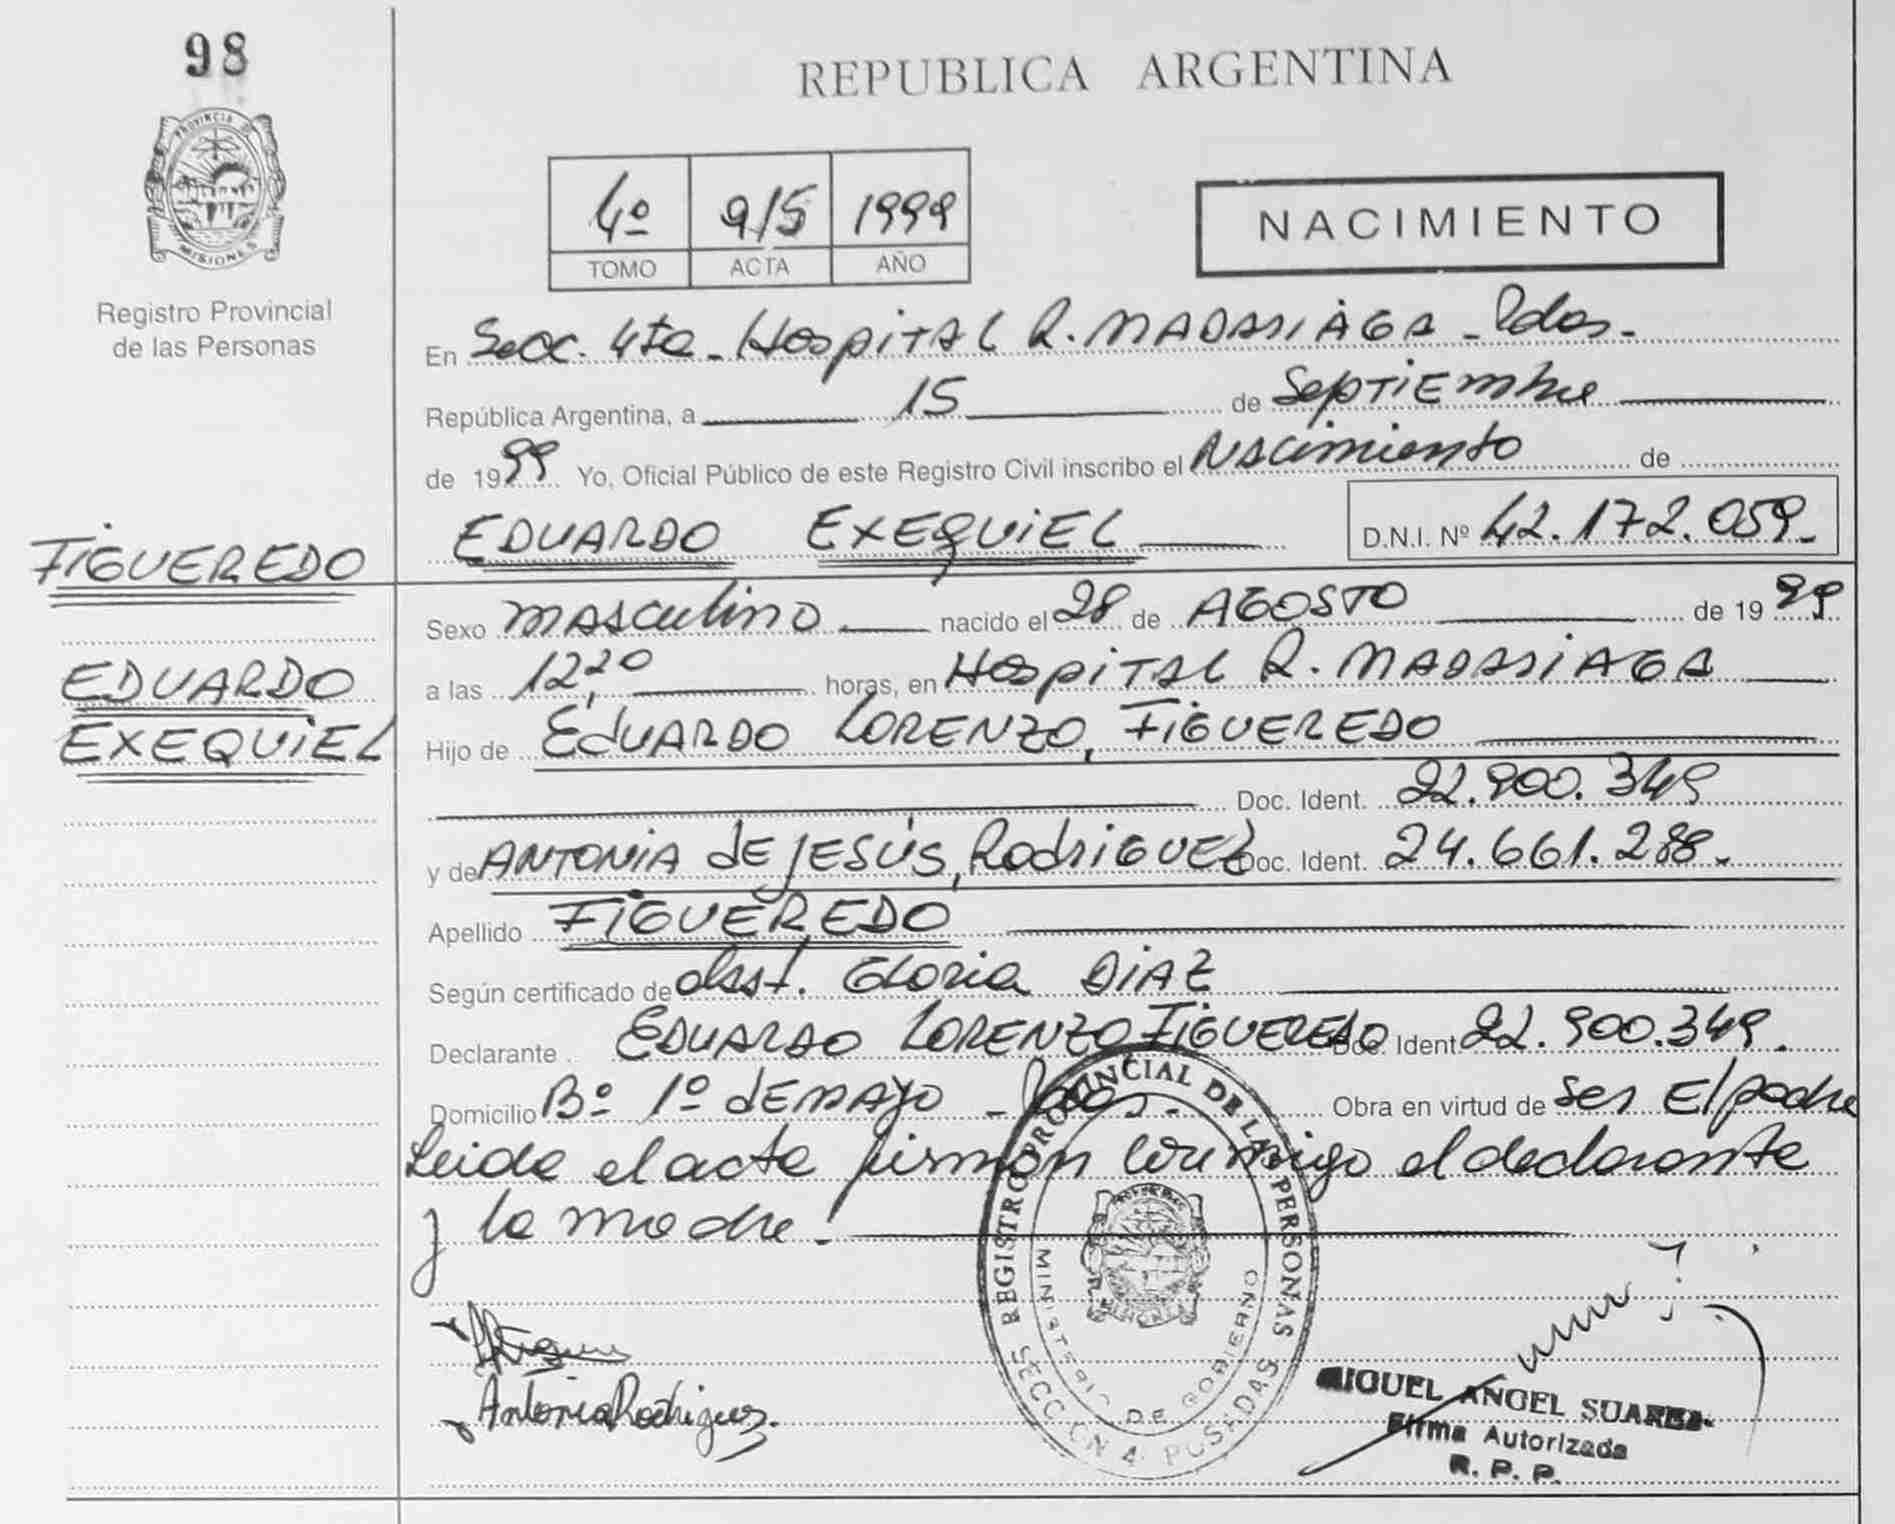 98
PROVINCIA DE
MISIONES
Registro Provincial
de las Personas
REPUBLICA ARGENTINA
4º 9/5 1999
TOMO ACTA AÑO
NACIMIENTO
En Secc. 4ta - Hospital R. MADARIAGA - Pdas.
República Argentina, a 15 de Septiembre
de 1999 Yo, Oficial Público de este Registro Civil inscribo el Nacimiento de
EDUARDO EXEQUIEL D.N.I. Nº 42.172.059.
FIGUEREDO
EDUARDO
EXEQUIEL
Sexo masculino nacido el 28 de AGOSTO de 1999
a las 12,20 horas, en Hospital R. MADARIAGA
Hijo de EDUARDO LORENZO, FIGUEREDO
Doc. Ident. 22.900.349
y de ANTONIA de JESÚS, RodriGUEZ Doc. Ident. 24.661.288.
Apellido FIGUEREDO
Según certificado de obst. Gloria DIAZ
Declarante EDUARDO LORENZO FIGUEREDO Doc. Ident. 22.900.349.
Domicilio Bº 1º de MAYO - Pdas. Obra en virtud de ser El padre
Leida el acta firman conmigo el declarante
y la madre.
REGISTRO PROVINCIAL DE LAS PERSONAS
MINISTERIO DE GOBIERNO
SECCION 4 POSADAS
Antonia Rodriguez.
MIGUEL ANGEL SUAREZ
Firma Autorizada
R. P. P.